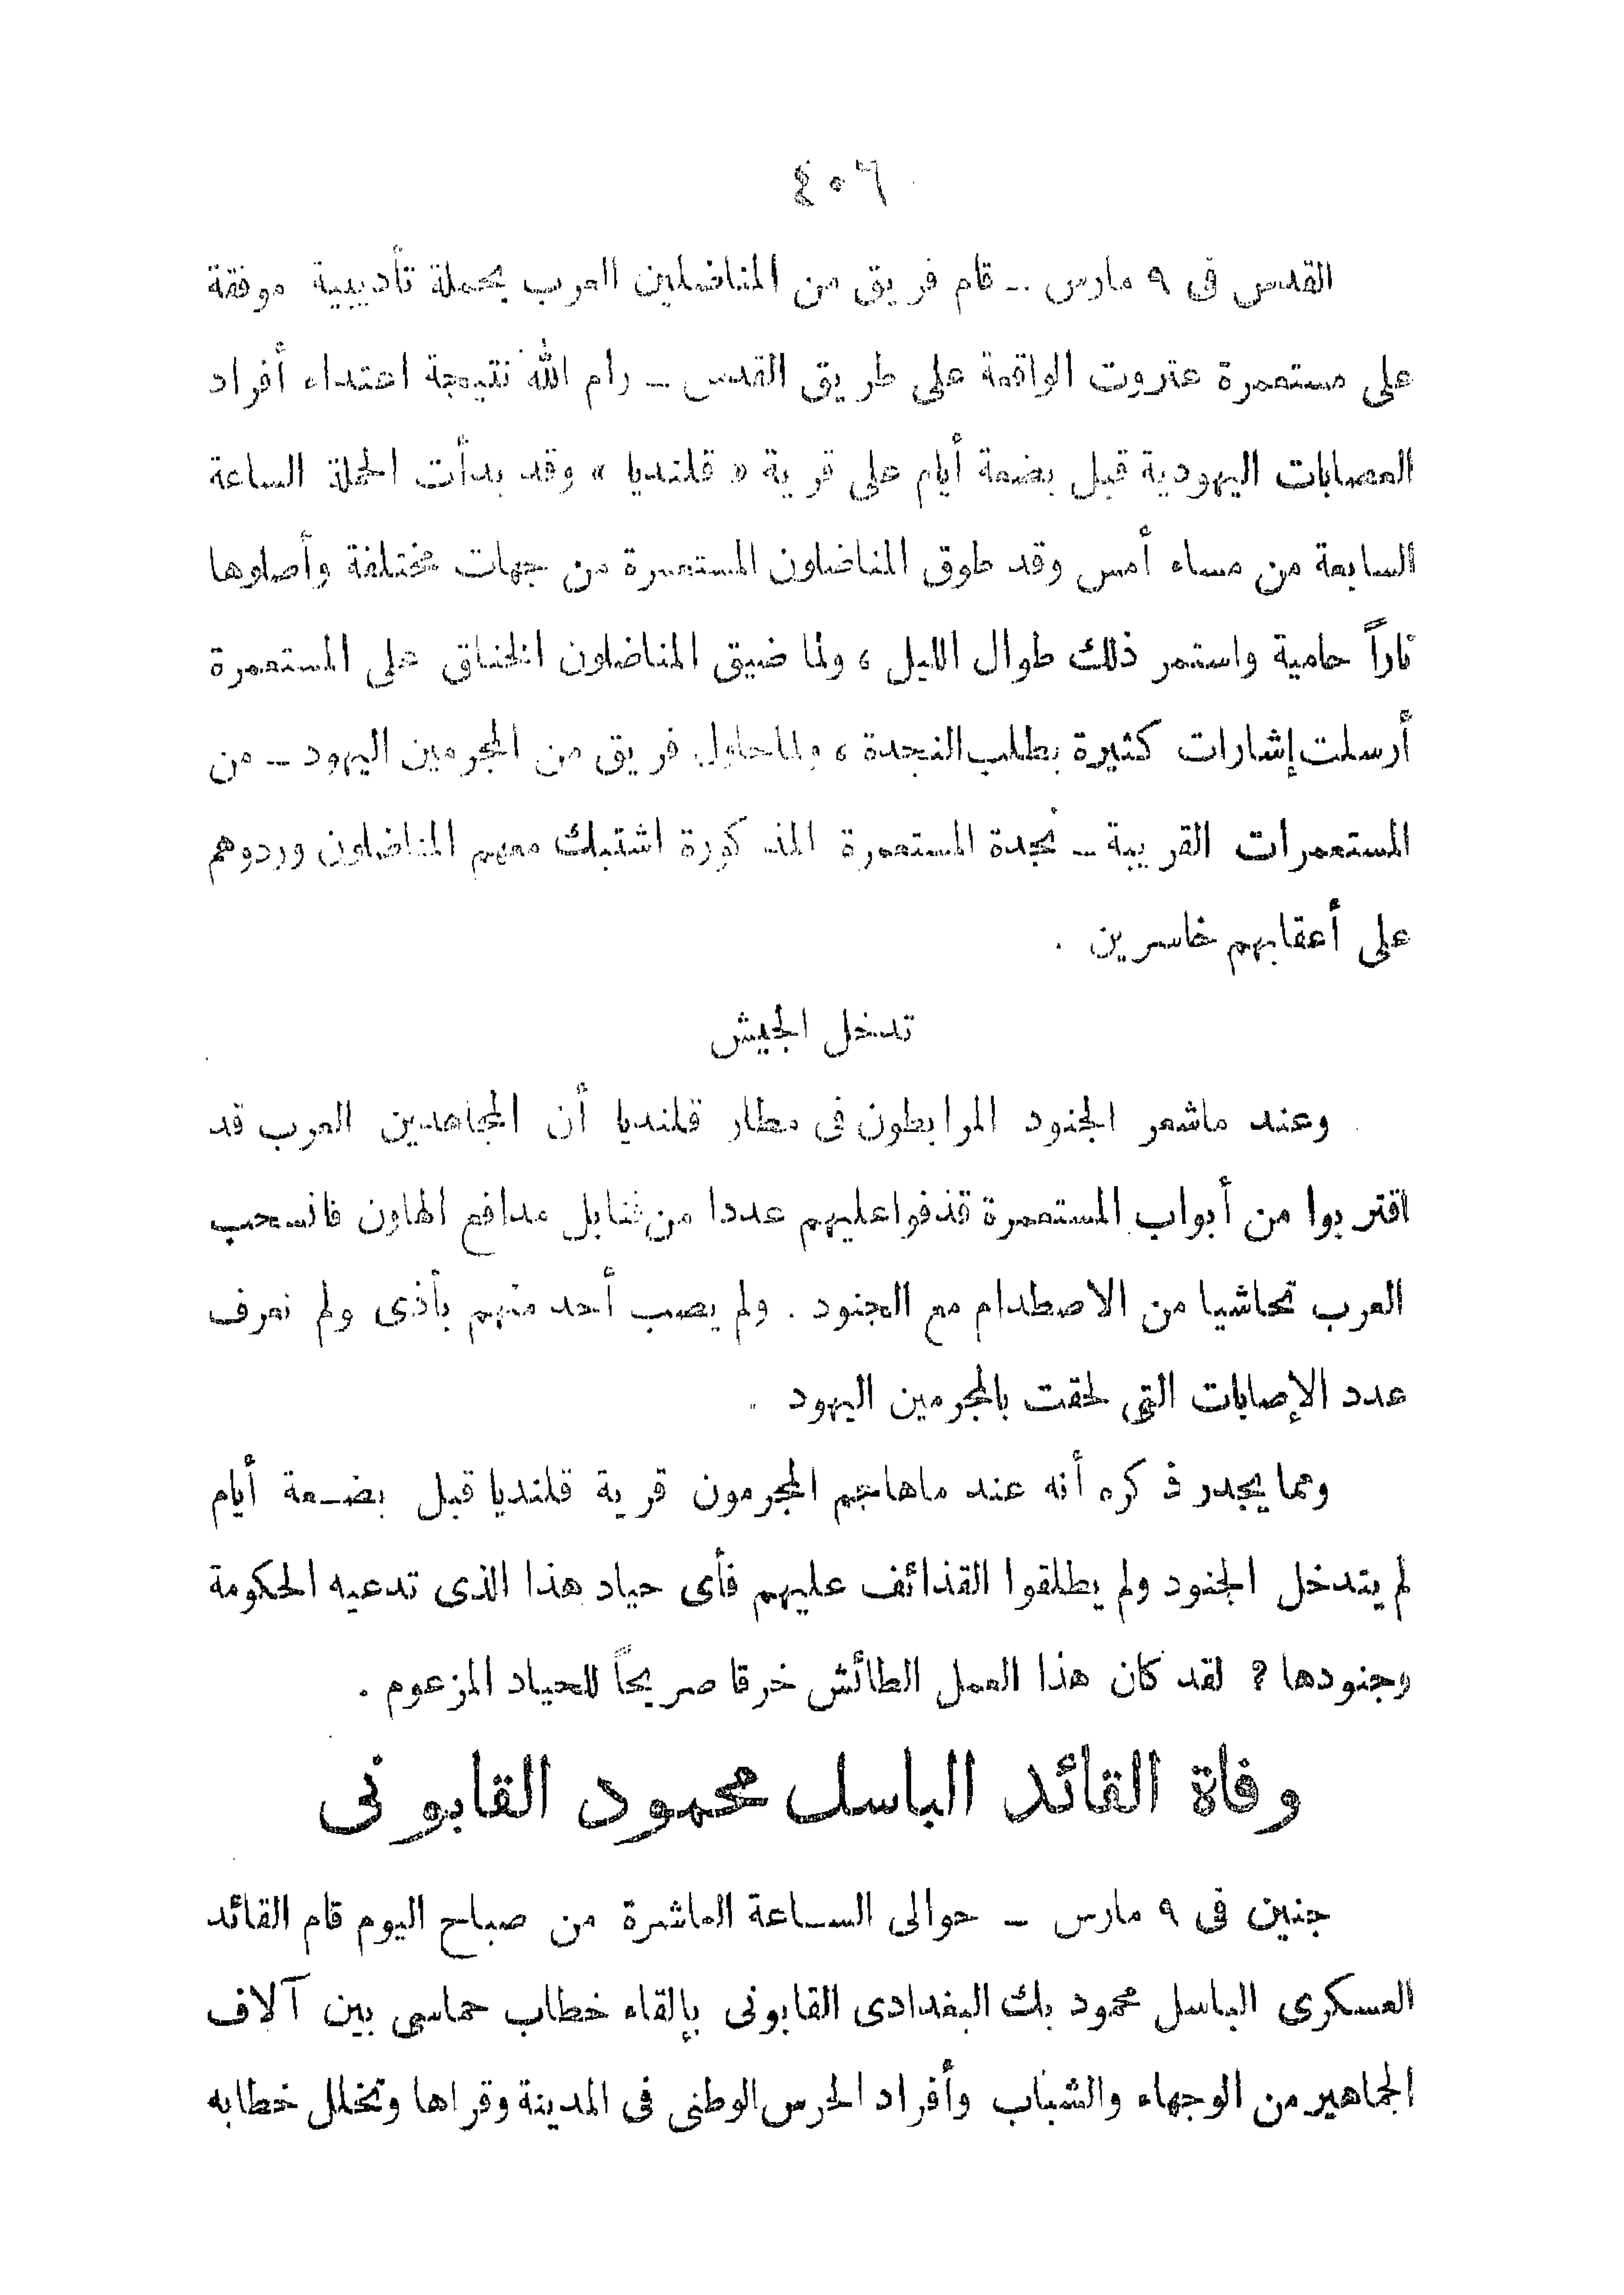 ٤٠٦
القدس فى ٩ مارس -- قام فريق من المناضلين العرب بحملة تأديبية موفقة
على مستعمرة عتروت الواقعة على طريق القدس -- رام الله نتيجة اعتداء أفراد
العصابات اليهودية قبل بضعة أيام على قرية « قلنديا » وقد بدأت الحملة الساعة
السابعة من مساء أمس وقد طوق المناضلون المستعمرة من جهات مختلفة وأصلوها
ناراً حامية واستمر ذلك طوال الليل ، ولما ضيق المناضلون الخناق على المستعمرة
أرسلت إشارات كثيرة بطلب النجدة ، ولما حاول فريق من المجرمين اليهود -- من
المستعمرات القريبة -- نجدة المستعمرة المذكورة اشتبك معهم المناضلون وردوهم
على أعقابهم خاسرين .
تدخل الجيش
وعند ماشعر الجنود المرابطون فى مطار قلنديا أن المجاهدين العرب قد
اقتربوا من أبواب المستعمرة قذفوا عليهم عددا من قنابل مدافع الهاون فانسحب
العرب تحاشيا من الاصطدام مع الجنود . ولم يصب أحد منهم بأذى ولم نعرف
عدد الإصابات التى لحقت بالمجرمين اليهود .
ومما يجدر ذكره أنه عند ماهاجم المجرمون قرية قلنديا قبل بضعة أيام
لم يتدخل الجنود ولم يطلقوا القذائف عليهم فأى حياد هذا الذى تدعيه الحكومة
وجنودها ؟ لقد كان هذا العمل الطائش خرقا صريحاً للحياد المزعوم .
وفاة القائد الباسل محمود القابونى
جنين فى ٩ مارس -- حوالى الساعة العاشرة من صباح اليوم قام القائد
العسكرى الباسل محمود بك البغدادى القابونى بإلقاء خطاب حماسى بين آلاف
الجماهير من الوجهاء والشباب وأفراد الحرس الوطنى فى المدينة وقراها وتخلل خطابه